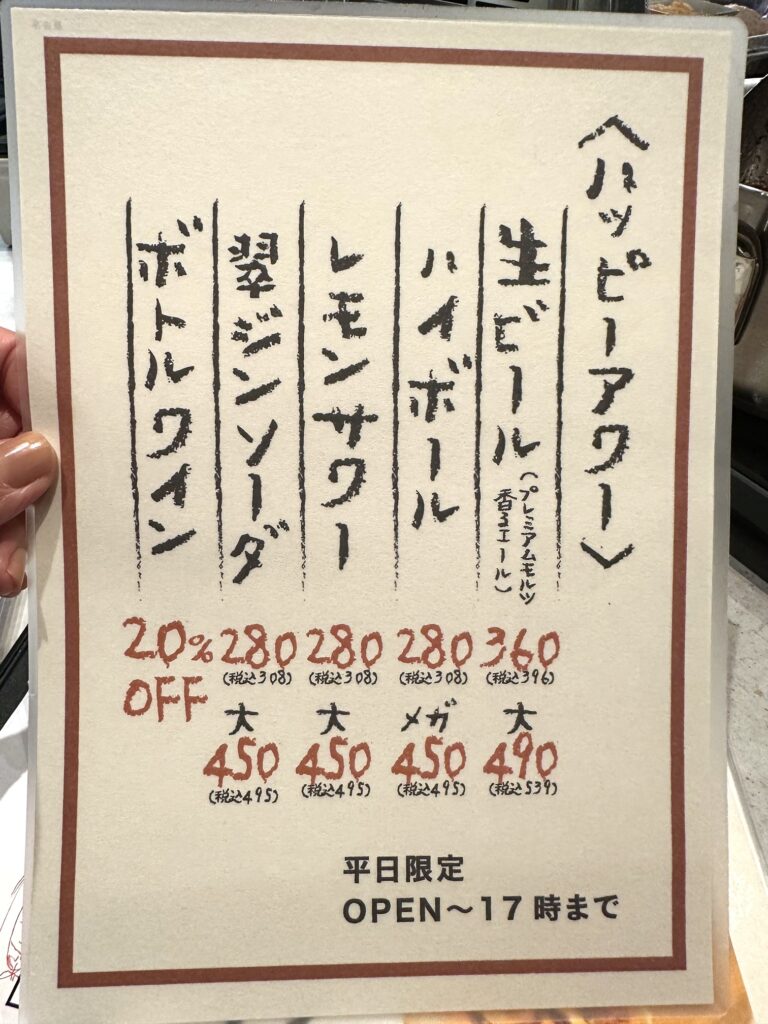 〈ハッピーアワー〉
生ビール（プレミアムモルツ
香るエール）
360
（税込396）
大
490
（税込539）
ハイボール
280
（税込308）
メガ
450
（税込495）
レモンサワー
280
（税込308）
大
450
（税込495）
翠ジンソーダ
280
（税込308）
大
450
（税込495）
ボトルワイン
20%
OFF
平日限定
OPEN〜17時まで